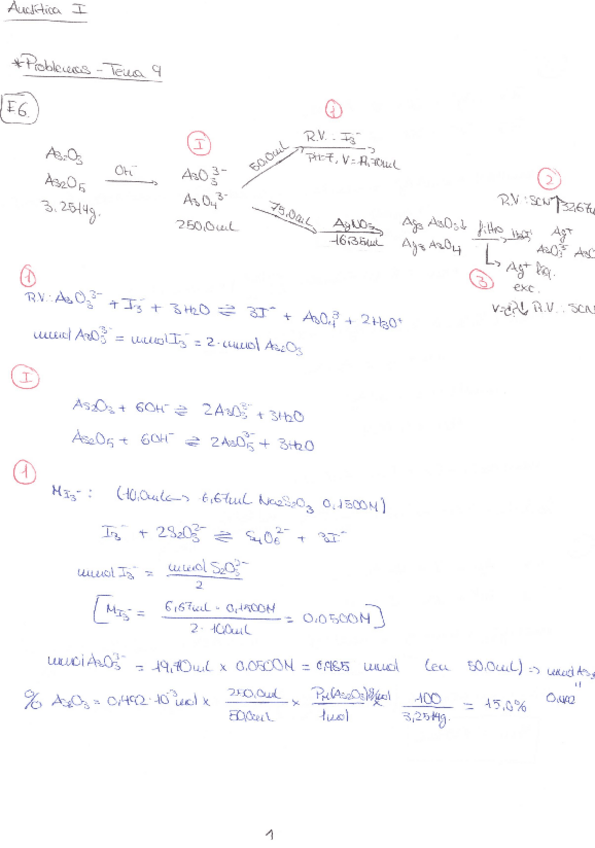 Analítica I
*Problemas - Tema 9
E6.
1
R.V. I3-
As2O3
As2O5
3.2514g.
OH-
I
AsO3 3-
AsO4 3-
250,0mL
50,0mL
pH=7, V=19,70mL
75,0mL
AgNO3
16,35mL
Ag3AsO3↓
Ag3AsO4
filtro
2
R.V.: SCN-
Ag+
3
Ag+ liq.
exc.
R.V.: SCN
1
R.V.: AsO3 3- + I3- + 3H2O ⇌ 3I- + AsO4 3- + 2H3O+
mmol AsO3 3- = mmol I3- = 2 · mmol As2O3
I
As2O3 + 6OH- ⇌ 2AsO3 3- + 3H2O
As2O5 + 6OH- ⇌ 2AsO 3- + 3H2O
1
M I3-: (10,0mL → 6,67mL Na2S2O3 0,1500M)
I3- + 2S2O3 2- ⇌ S4O6 2- + 3I-
mmol I3- = mmol S2O3 2- / 2
[M I3- = 6,67mL · 0,1500M / 2 · 10,0mL = 0,0500M]
mmol AsO3 3- = 19,70mL x 0,0500M = 0,985 mmol (en 50.0mL) ⇒ mmol As
0,492
% As2O3 = 0,492·10-3 mol x 250,0mL / 50,0mL x Pm(As2O3) / 1mol x 100 / 3,2514g. = 15,0%
1